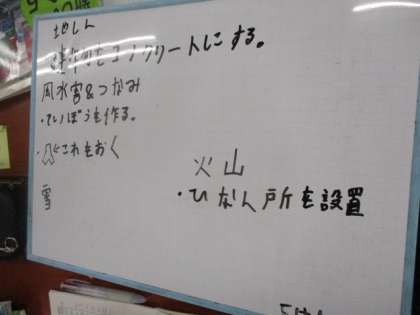 地しん
建作物をコンクリートにする。
風水害&つなみ
・ていぼうを作る。
・⇐これをおく
雪
火山
・ひなん所を設置